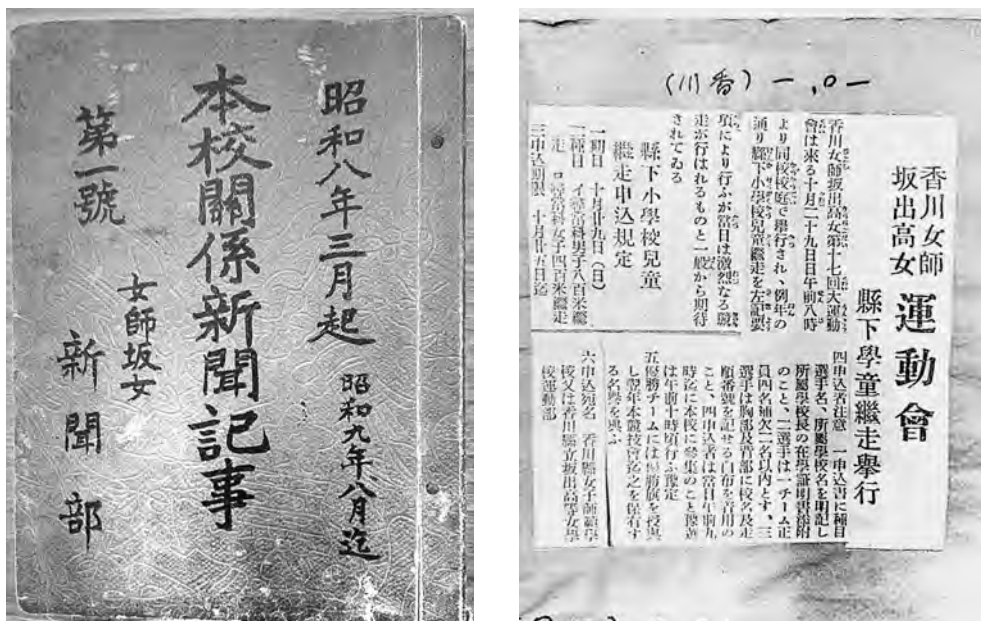 昭和八年三月起
昭和九年八月迄
本校關係新聞記事
女師坂女
第一號
新聞部
(川香) 一、〇一
香川女師
坂出高女
運動會
縣下學童繼走擧行
香川女師坂出高女第十七回大運動
會は來る十月二十九日日午前八時
より同校校庭で擧行され、例年の
通り縣下小學校兒童繼走を左記要
項により行ふが當日は激烈なる競
走が行はれるものと一般から期待
されてゐる
縣下小學校兒童
繼走申込規定
一期日 十月廿九日(日)
二種目 イ尋常科男子八百米繼
走 ロ尋常科女子四百米繼走
三申込期限 十月廿五日迄
四申込者注意 一申込書に種目
選手名、所屬學校名を明記し
所屬學校長の在學証明書添附
のこと、二選手は一チーム正
員四名補欠二名以内とす、三
選手は胸部及背部に校名及走
順番號を記せる白布を着用の
こと、四申込者は當日午前九
時迄に本校に參集のこと豫選
は午前十時頃行ふ豫定
五優勝チームには優勝旗を授與
し翌年本競技會迄之を保有す
る名譽を與ふ
六申込宛名 香川縣女子師範學
校又は香川縣立坂出高等女學
校運動部